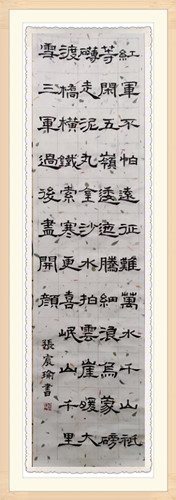 紅軍不怕遠征難萬水千山祇
等閑五嶺逶迤騰細浪烏蒙磅
礴走泥丸金沙水拍雲崖暖大
渡橋橫鐵索寒更喜岷山千里
雪三軍過後盡開顏
張宸瑜書